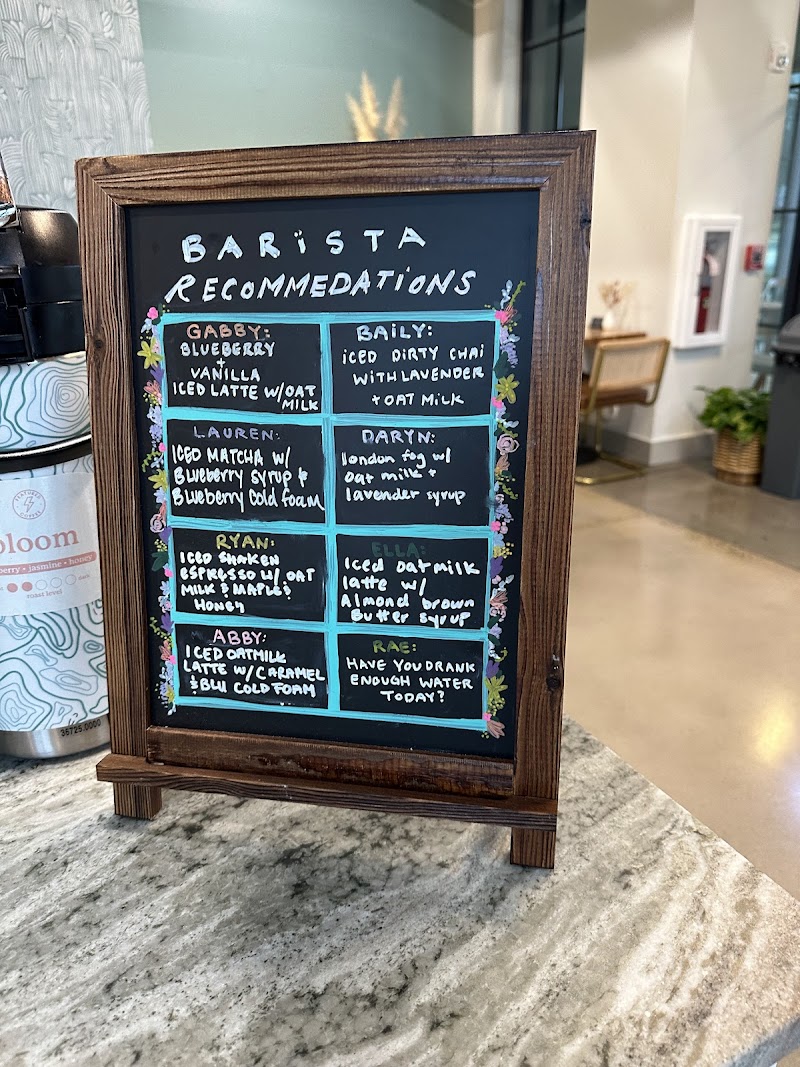 BARISTA
RECOMMEDATIONS
GABBY:
BLUEBERRY
+
VANILLA
ICED LATTE W/OAT
MILK
BAILY:
ICED DIRTY CHAI
WITH LAVENDER
+ OAT MILK
LAUREN:
ICED MATCHA W/
Blueberry syrup &
Blueberry Cold foam
DARYN:
london fog w/
oat milk +
lavender syrup
RYAN:
ICED SHAKEN
ESPRESSO W/ OAT
MILK & MAPLE &
HONEY
ELLA:
Iced oatmilk
latte w/
Almond brown
Butter syrup
ABBY:
ICED OATMILK
LATTE W/ CARAMEL
& BLU COLD FOAM
RAE:
HAVE YOU DRANK
ENOUGH WATER
TODAY?
FEATURED
COFFEE
bloom
erry • jasmine • honey
dark
roast level
36725.0000